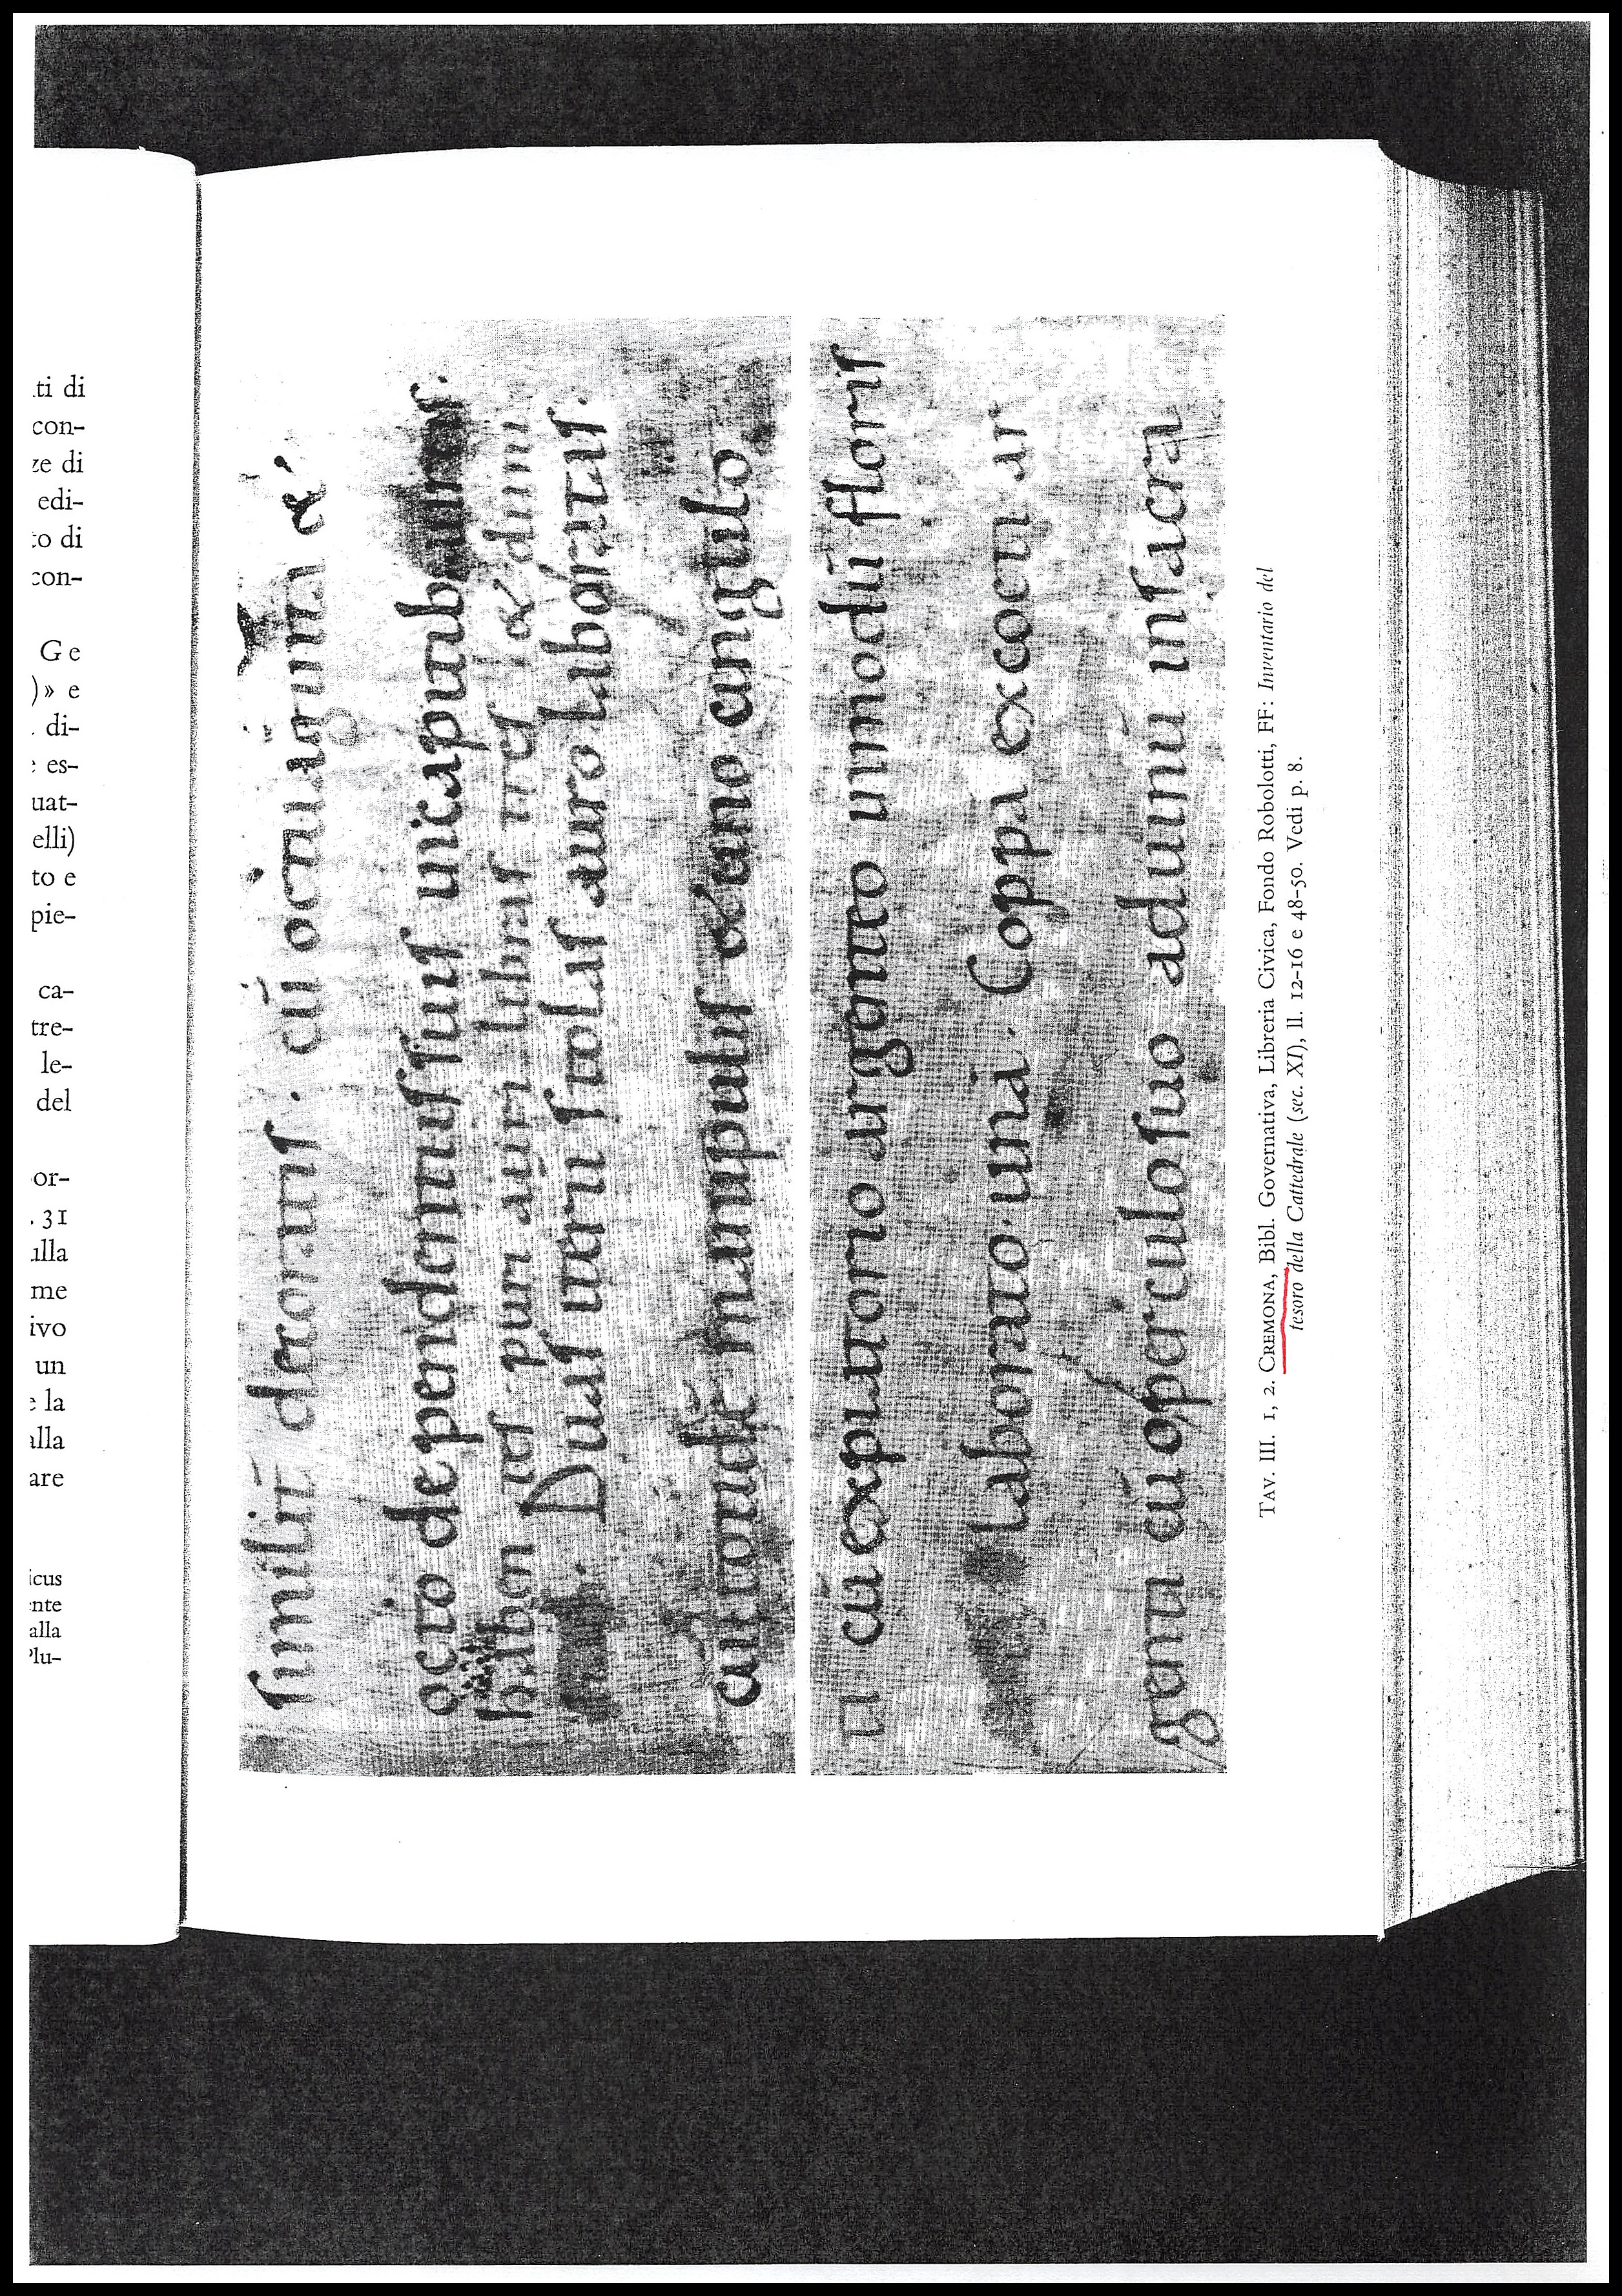 .ti di
con-
ze di
edi-
to di
con-
Ge
)» e
. di-
: es-
uat-
elli)
to e
pie-
ca-
tre-
le-
del
or-
. 31
alla
me
ivo
un
e la
alla
are
icus
ente
alla
Plu-
similit decorat. cū octuaginta &
octo dependentiſ ſuiſ unicapitib
haben teſ puri auri libraſ treſ & dim
Duaſ uero ſtolaſ auro laborataſ.
cum manipuliſ & uno cingulo
cū expiatorio argento inmodū floriſ
laborato. unā. Coppā excocti ar
genti cū operculo ſuo ad unū inſacra
TAV. III. 1, 2. CREMONA, Bibl. Governativa, Libreria Civica, Fondo Robolotti, FF: Inventario del
tesoro della Cattedrale (sec. XI), ll. 12-16 e 48-50. Vedi p. 8.